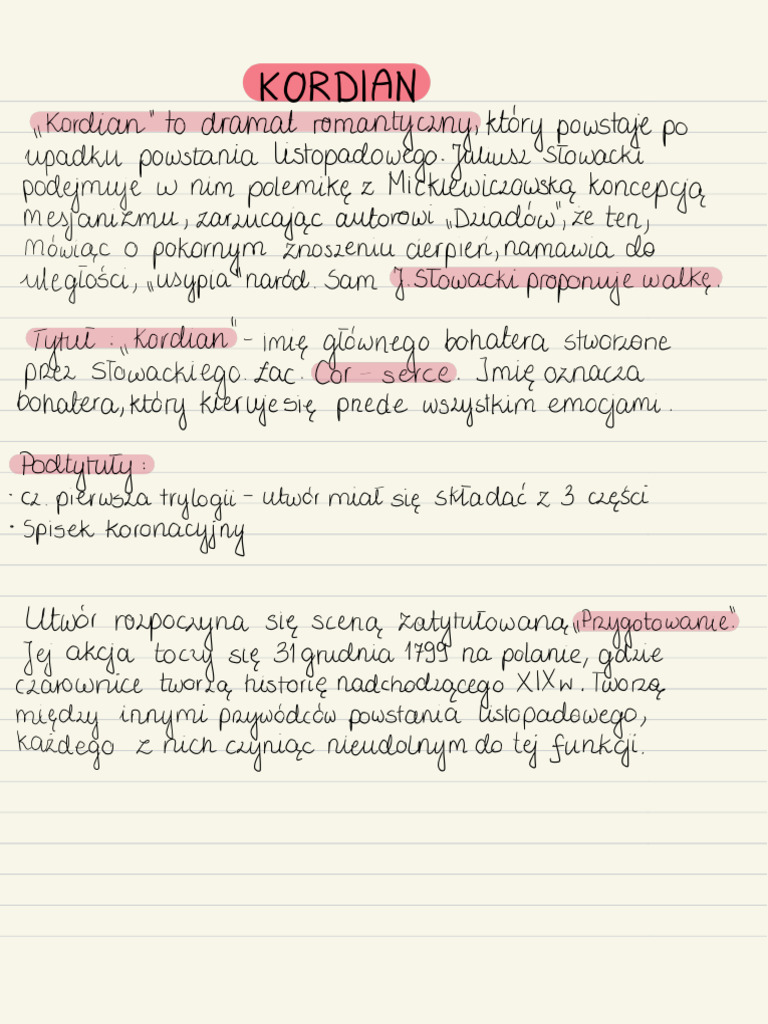 KORDIAN
„Kordian" to dramat romantyczny, który powstaje po
upadku powstania listopadowego. Juliusz Słowacki
podejmuje w nim polemikę z Mickiewiczowską koncepcją
mesjanizmu, zarzucając autorowi „Dziadów", że ten,
mówiąc o pokornym znoszeniu cierpień, namawia do
uległości, „usypia" naród. Sam J. Słowacki proponuje walkę.
Tytuł: „Kordian" - imię głównego bohatera stworzone
przez Słowackiego. Łac. Cor - serce. Imię oznacza
bohatera, który kieruje się przede wszystkim emocjami.
Podtytuły:
· cz. pierwsza trylogii - utwór miał się składać z 3 części
· Spisek koronacyjny
Utwór rozpoczyna się sceną zatytułowaną „Przygotowanie."
Jej akcja toczy się 31 grudnia 1799 na polanie, gdzie
czarownice tworzą historię nadchodzącego XIX w. Tworzą
między innymi przywódców powstania listopadowego,
każdego z nich czyniąc nieudolnym do tej funkcji.